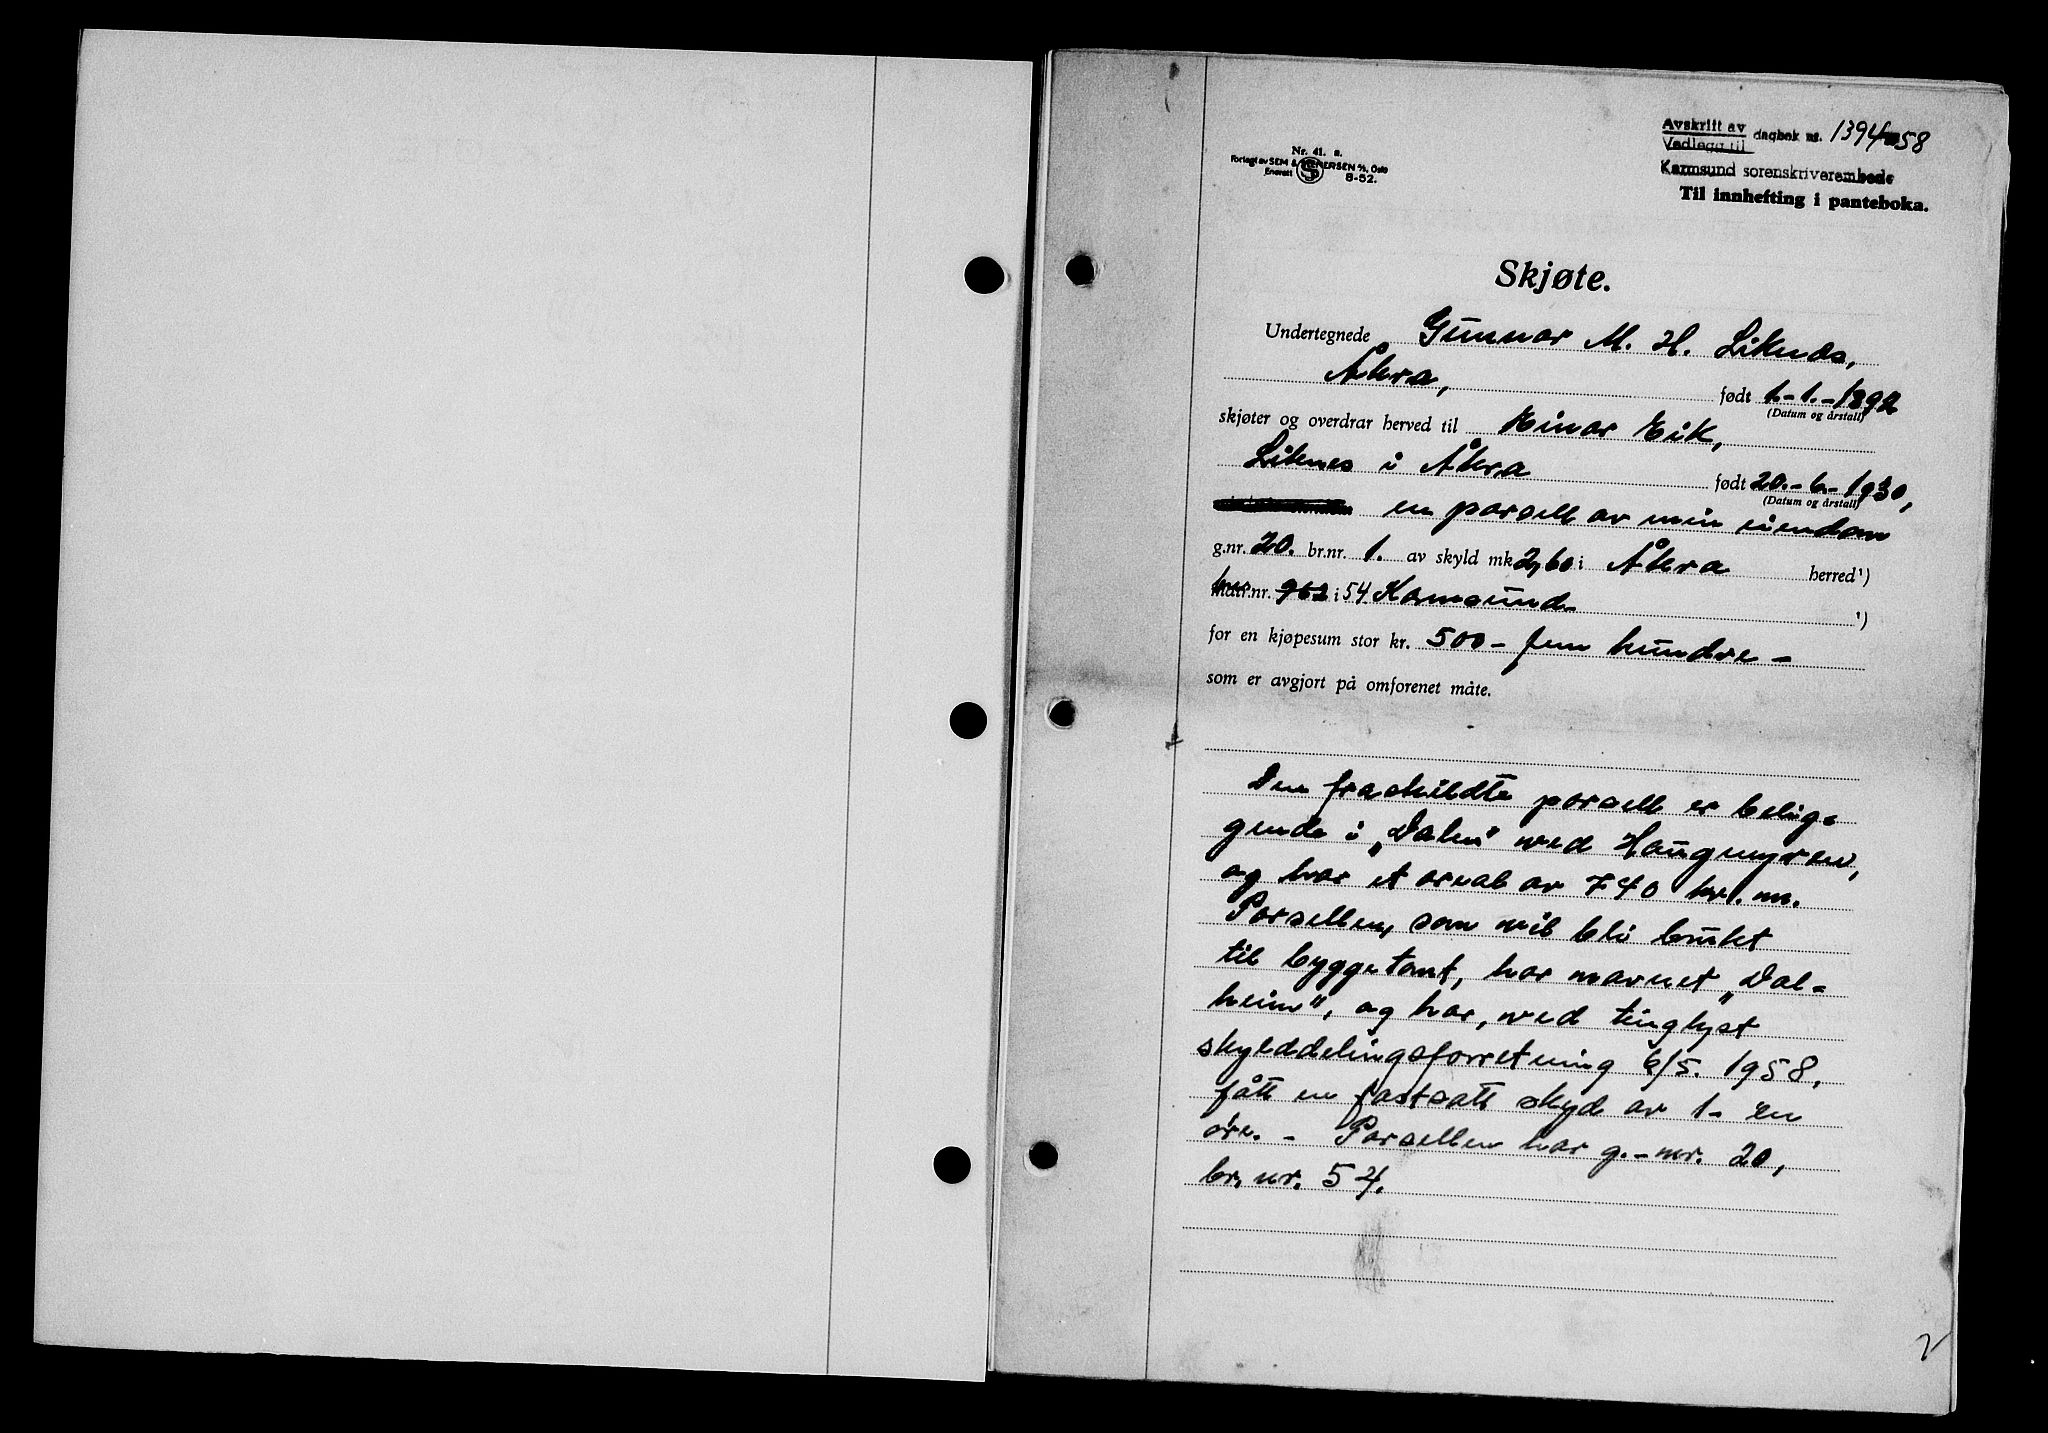 Avskrift av
Vedlegg til dagbok nr. 1394 58
Karmsund sorenskriverembede
Til innhefting i panteboka.
Nr. 41. a.
Forlagt av SEM & STENERSEN A/S, Oslo
Enerett 8-52.
Skjøte.
Undertegnede Gunnar M. H. Liknes,
Åkra, født 1.-1.-1892
(Datum og årstall)
skjøter og overdrar herved til Einar Eik,
Liknes i Åkra født 20.-6.-1930,
(Datum og årstall)
en parsell av min eiendom
g.nr. 20. br.nr. 1. av skyld mk 2,60 i Åkra herred ¹)
matr.nr. i 54 Karmsund. ¹)
for en kjøpesum stor kr. 500- fem hundre -
som er avgjort på omforenet måte.
Den fraskildte parsell er belig=
gende i „Dalen" ved Haugmyren,
og har et areal av 740 kv. m.
Parsellen, som vil bli brukt
til byggetomt, har navnet „Dal=
heim", og har, ved tinglyst
skylddelingsforretning 6/5. 1958,
fått en fastsatt skyld av 1- en
øre. - Parsellen har g.-nr. 20,
br. nr. 54.
2